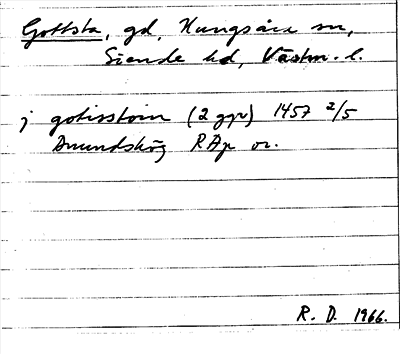 Gottsta, gd, Kungsåra sn,
Siende hd, Västm. l.
j gotisstom (2 ggr) 1457 2/5
Amundskög RAp or.
R. D. 1966.